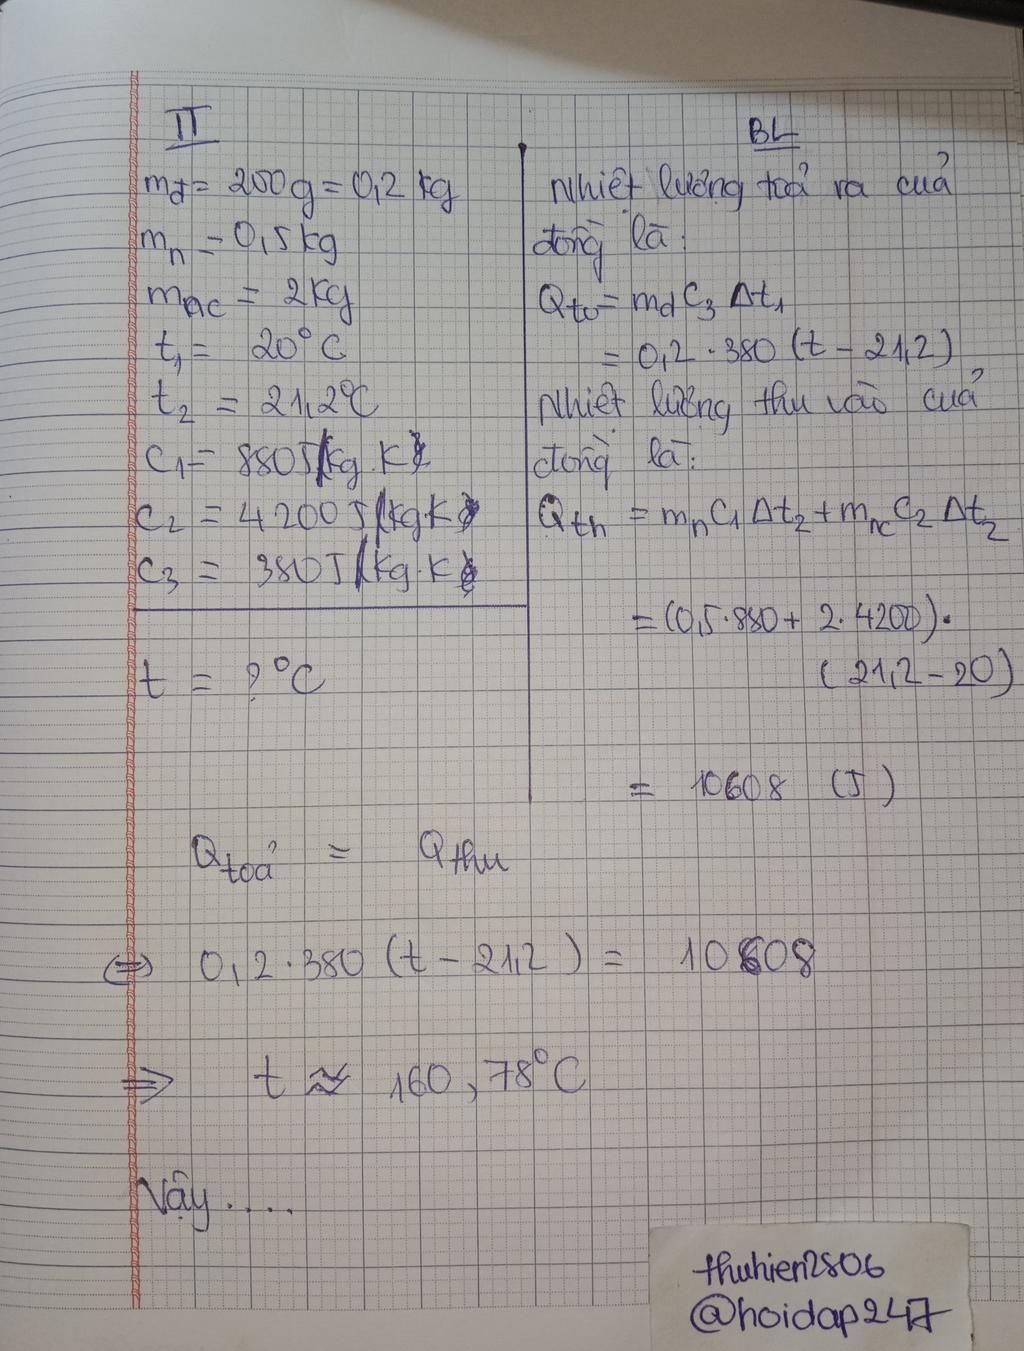 TT
mđ = 200g = 0,2 kg
mn = 0,5kg
mnc = 2kg
t1 = 20°C
t2 = 21,2°C
C1 = 880J/kg.K
C2 = 4200J/kg.K
C3 = 380J/kg.K
t = ?°C
BL
Nhiệt lượng toả ra của
đồng là:
Qto = mđ C3 Δt1
= 0,2 . 380 (t - 21,2)
Nhiệt lượng thu vào của
đồng là:
Qth = mn C1 Δt2 + mnc C2 Δt2
= (0,5.880 + 2.4200).
(21,2 - 20)
= 10608 (J)
Qtoả = Qthu
⇔ 0,2.380 (t - 21,2) = 10608
⇒ t ≈ 160,78°C
Vậy .....
thuhien2806
@hoidap247